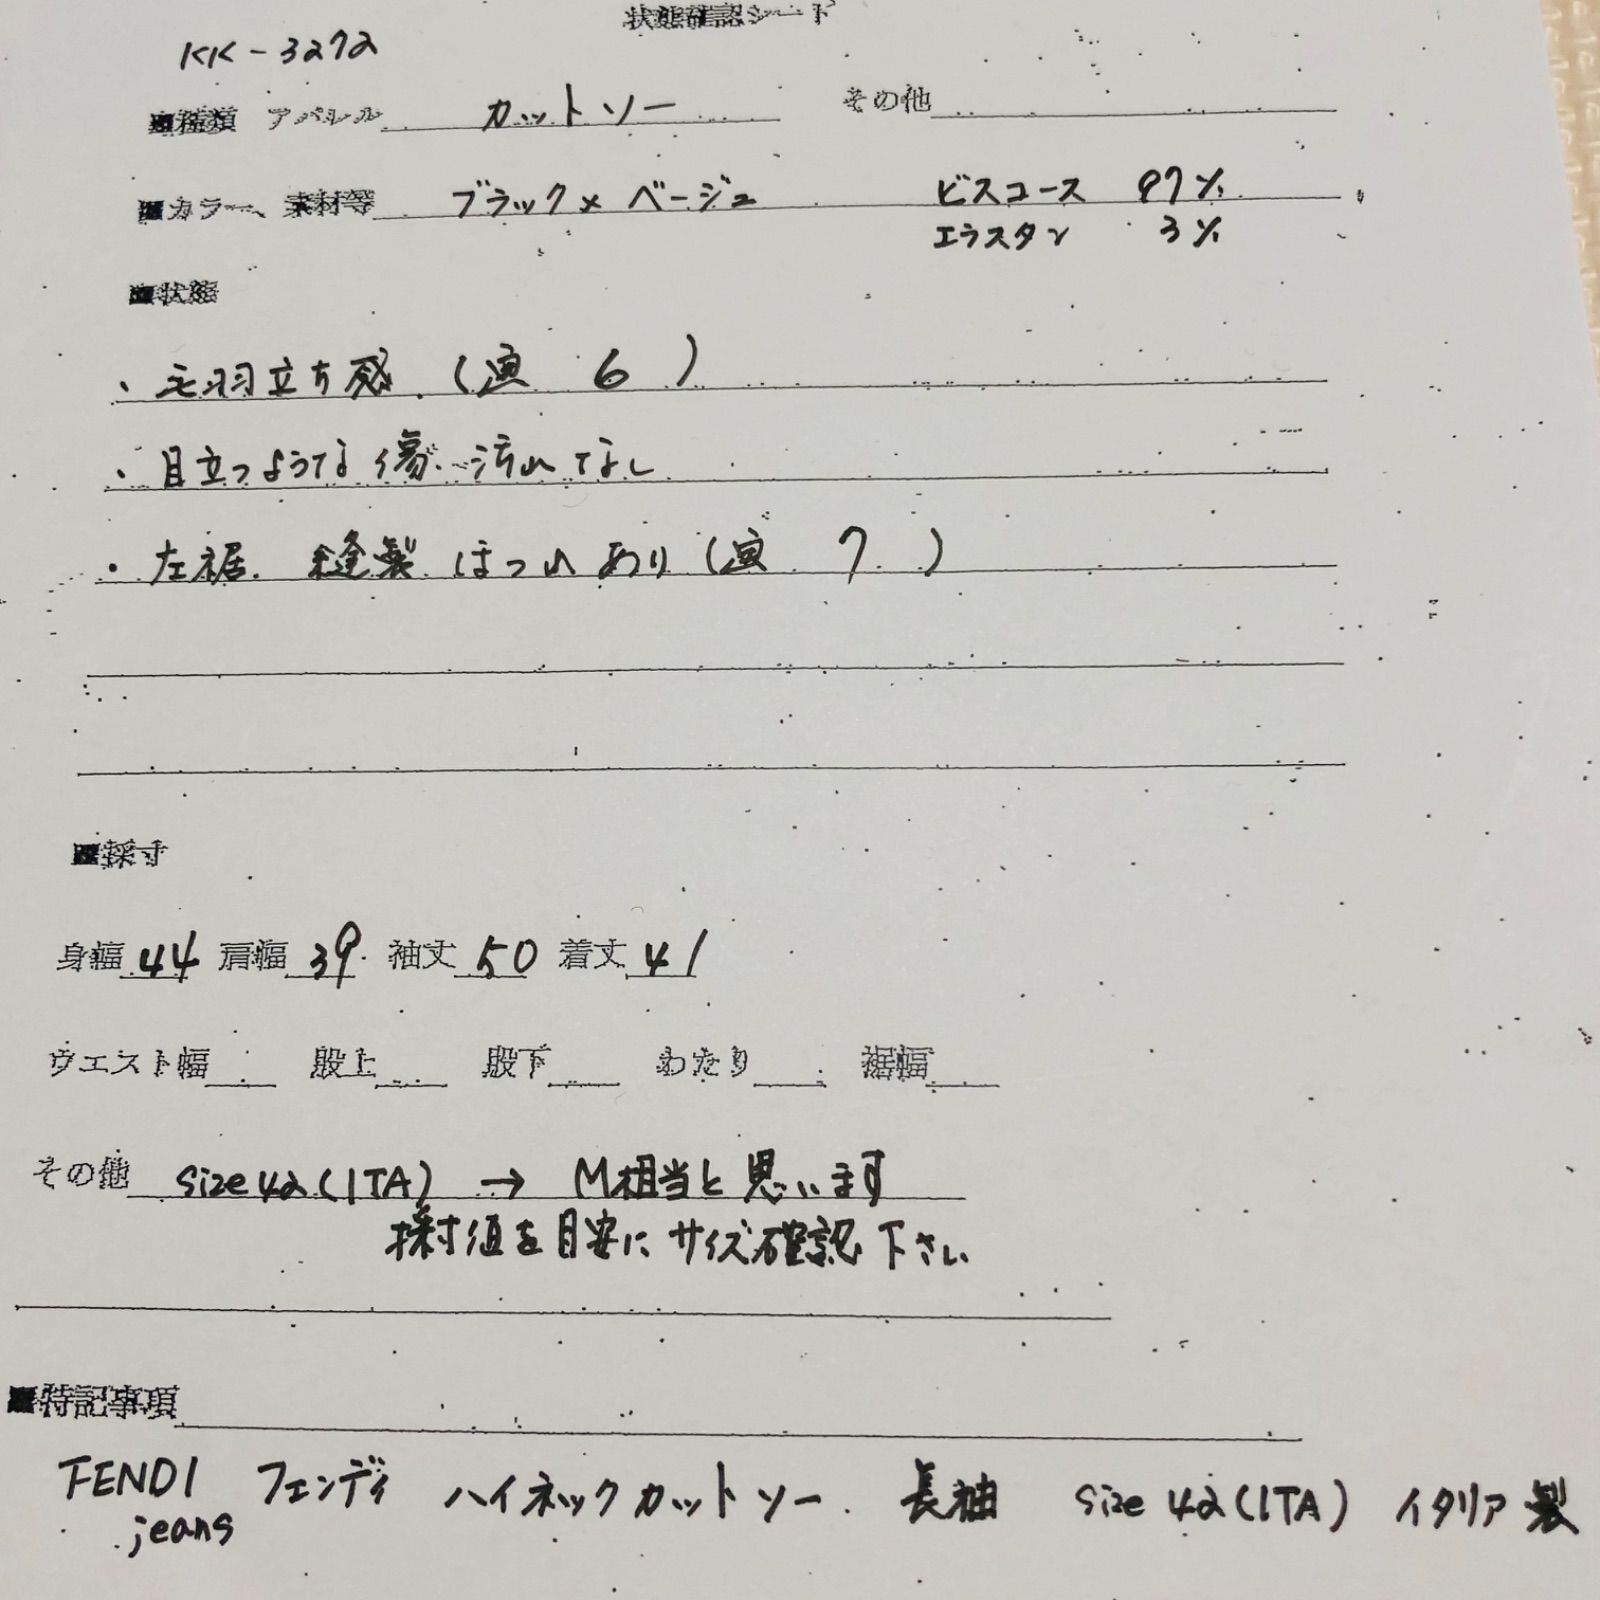 状態確認シート
KK-3272
■種類 アパレル カットソー その他
■カラー、素材等 ブラック×ベージュ ビスコース 97%
エラスタン 3%
■状態
・毛羽立ち感 (画 6 )
・目立つような傷、汚れなし
・左裾 縫製 ほつれあり (画 7 )
■採寸
身幅 44 肩幅 39 袖丈 50 着丈 41
ウエスト幅 股上 股下 わたり 裾幅
その他 size 42 (ITA) → M相当と思います
採寸値を目安にサイズ確認下さい
■特記事項
FENDI フェンディ ハイネックカットソー 長袖 size 42 (ITA) イタリア製
jeans